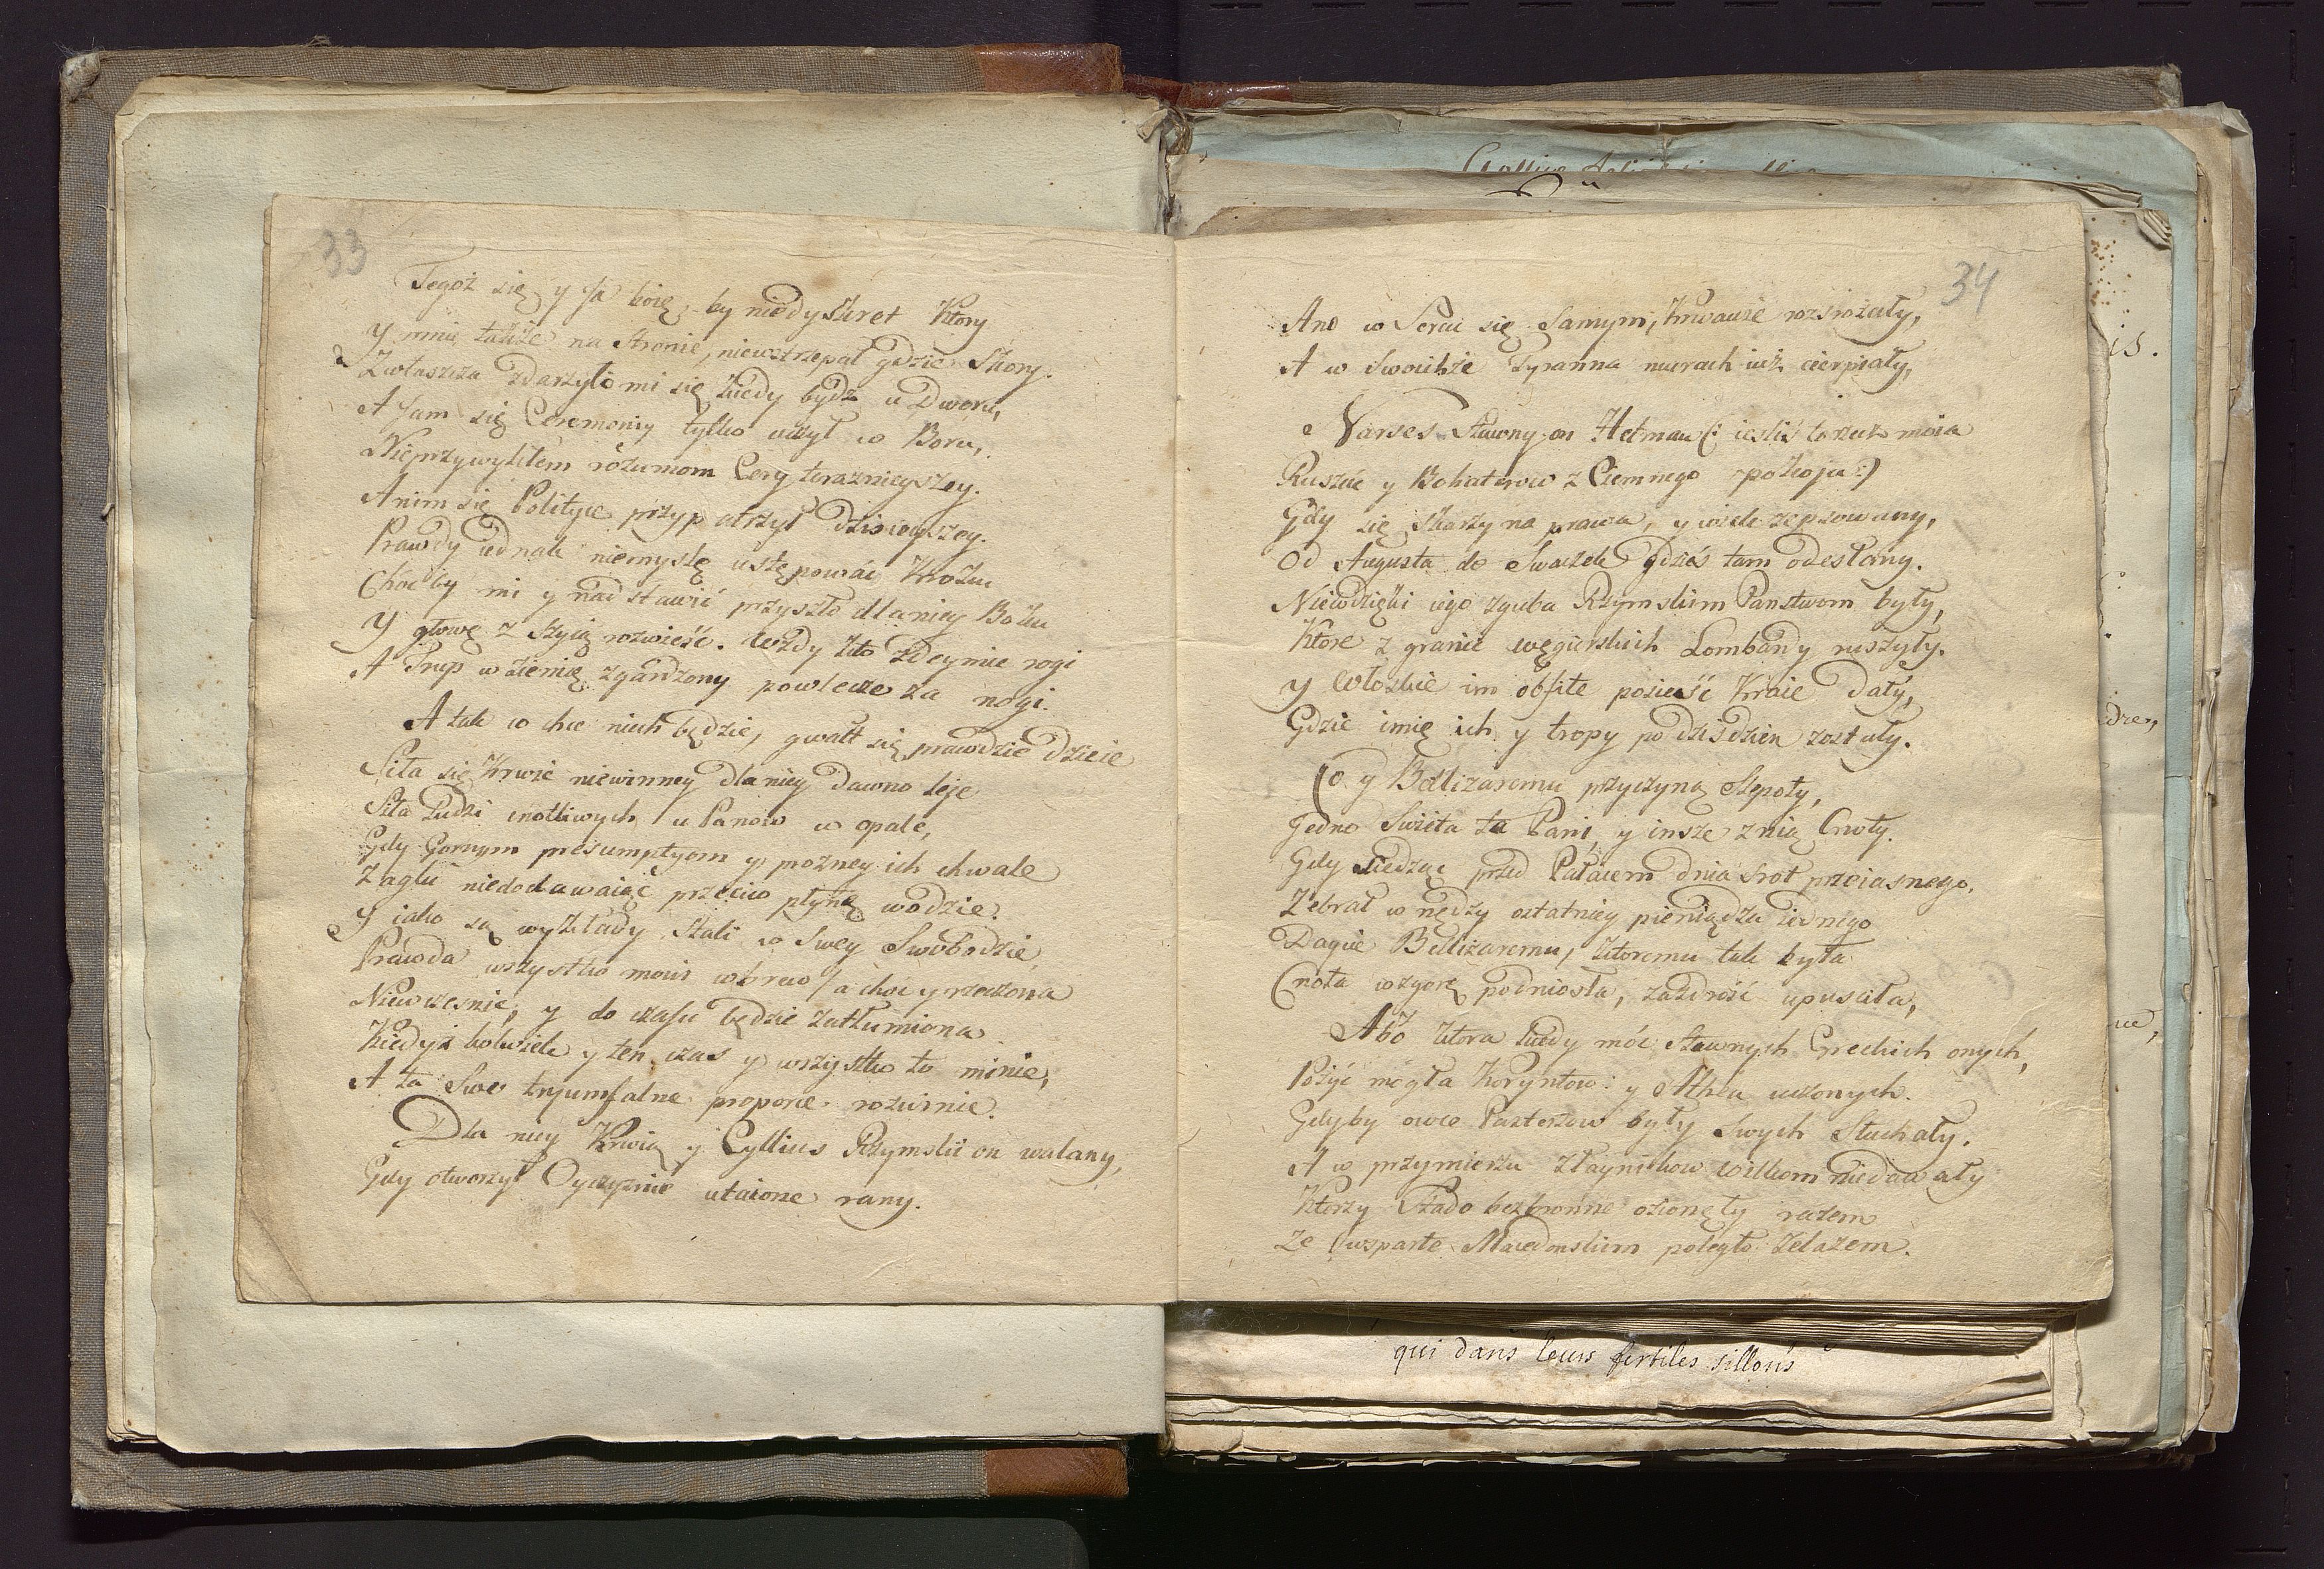 33
Tegoż się y Ja boię, by niedyskret Ktory
Y mnie także na stronie, niewstrzepał gdzie Skory.
Zwłaszcza zdarzyło mi się kiedy bydź u Dworu,
A Jam się Ceremoniy tylko uczył w Boru,
Nieprzywykłem rozumom Cery teraznieyszey.
Anim się Polityce przypatrzył dzisieyszey.
Prawdy iednak niemyslę ustępować Kroku
Choćby mi y nadstawić przyszło dla niey Boku
Y głowę z szyią rozwieść. Wżdy kto zdeymie rogi
A Trup w ziemię zgardzony powlecze za nogi.
A tak co chce niech będzie, gwałt się prawdzie dzieie
Siła się Krwie niewinney dla niey dawno leje
Siła Ludzi cnotliwych u Panow w opale,
Gdy Gornym presumptyom y prozney ich chwale
Zaglu niedodawaiąc przeciw płyną wodzie.
Y iako są wykłady Stali w Swey Swobodzie
Prawda wszystko mowi wbrew / a choc y rzeczona
Niewczesnie, y do czasu będzie zatłumiona
Kiedyż kolwiek y ten czas y wszystko to minie,
A ta Swe tryumfalne proporce rozwinie.
Dla niey Krwią y Cyllius Rzymski on walany,
Gdy otworzył Oyczyznie utaione rany.
34
Ano w Sercu się Samym, krwawie rozsrożały,
A w Swoichże Tyranna murach iuż cierpiały,
Narses Sławny on Hetman (: iesliś to rzecz moia
Ruszać y Bohaterow z Ciemnego pokoja :)
Gdy się skarzy na prawa, y wiek zepsowany,
Od Augusta do Swaczek gdzieś tam odesłany.
Niewdzięki iego zguba Rzymskim Panstwom były,
Ktore z granic węgierskich Lombardy ruszyły.
Y Włoskie im obfite posieść Kraie dały,
Gdzie imię ich y tropy po dziśdzien zostały.
Co y Bellizaremu przyczyną Slepoty,
Jedno Swięta ta Pani, y insze z nią Cnoty.
Gdy siedząc przed Pałacem dnia srot przeiasnego,
Zebrał w nędzy ostatniey pieniądza iednego
Daycie Bellizaremu, ktoremu tak była
Cnota wzgorę podniosła, zazdrość upuscila,
Abo ktora kiedy móc Sławnych Greckich onych,
Pożyć mogła Koryntow y Athen uczonych.
Gdyby owce Pasterzow były Swych Słuchały.
A w przymierzu Złaynikow Wilkom niedawały
Ktorzy Stado bezbronne ozionęły razem
Ze wsparte Macedonskim poległo żelazem.
qui dans leurs fertiles sillons